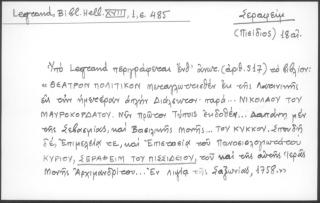 Legrand, Bibl. Hell. XVIII, 1, σ. 485
Σεραφείμ
(Πισίδιος) 18 αἰ.
Ὑπὸ Legrand περιγράφεται ἐνθ' ἀνωτ. (ἀρθ. 517) τὸ βιβλίον:
«ΘΕΑΤΡΟΝ ΠΟΛΙΤΙΚΟΝ μεταγλωττισθὲν ἐκ τῆς Λατινικῆς
εἰς τὴν ἡμετέραν ἁπλῆν Διάλεκτον παρὰ... ΝΙΚΟΛΑΟΥ ΤΟΥ
ΜΑΥΡΟΚΟΡΔΑΤΟΥ. Νῦν πρῶτον Τύποις ἐκδοθὲν... Δαπάνῃ μὲν
τῆς Σεβασμίας, καὶ Βασιλικῆς Μονῆς... ΤΟΥ ΚΥΚΚΟΥ. Σπουδῇ
δέ, Ἐπιμελείᾳ τε, καὶ Ἐπιστασίᾳ τοῦ Πανοσιολογιωτάτου
ΚΥΡΙΟΥ, ΣΕΡΑΦΕΙΜ ΤΟΥ ΠΙΣΣΙΔΕΙΟΥ, τοῦ καὶ τῆς αὐτῆς Ἱερᾶς
Μονῆς Ἀρχιμανδρίτου... Ἐν Λιψίᾳ τῆς Σαξωνίας, 1758.»